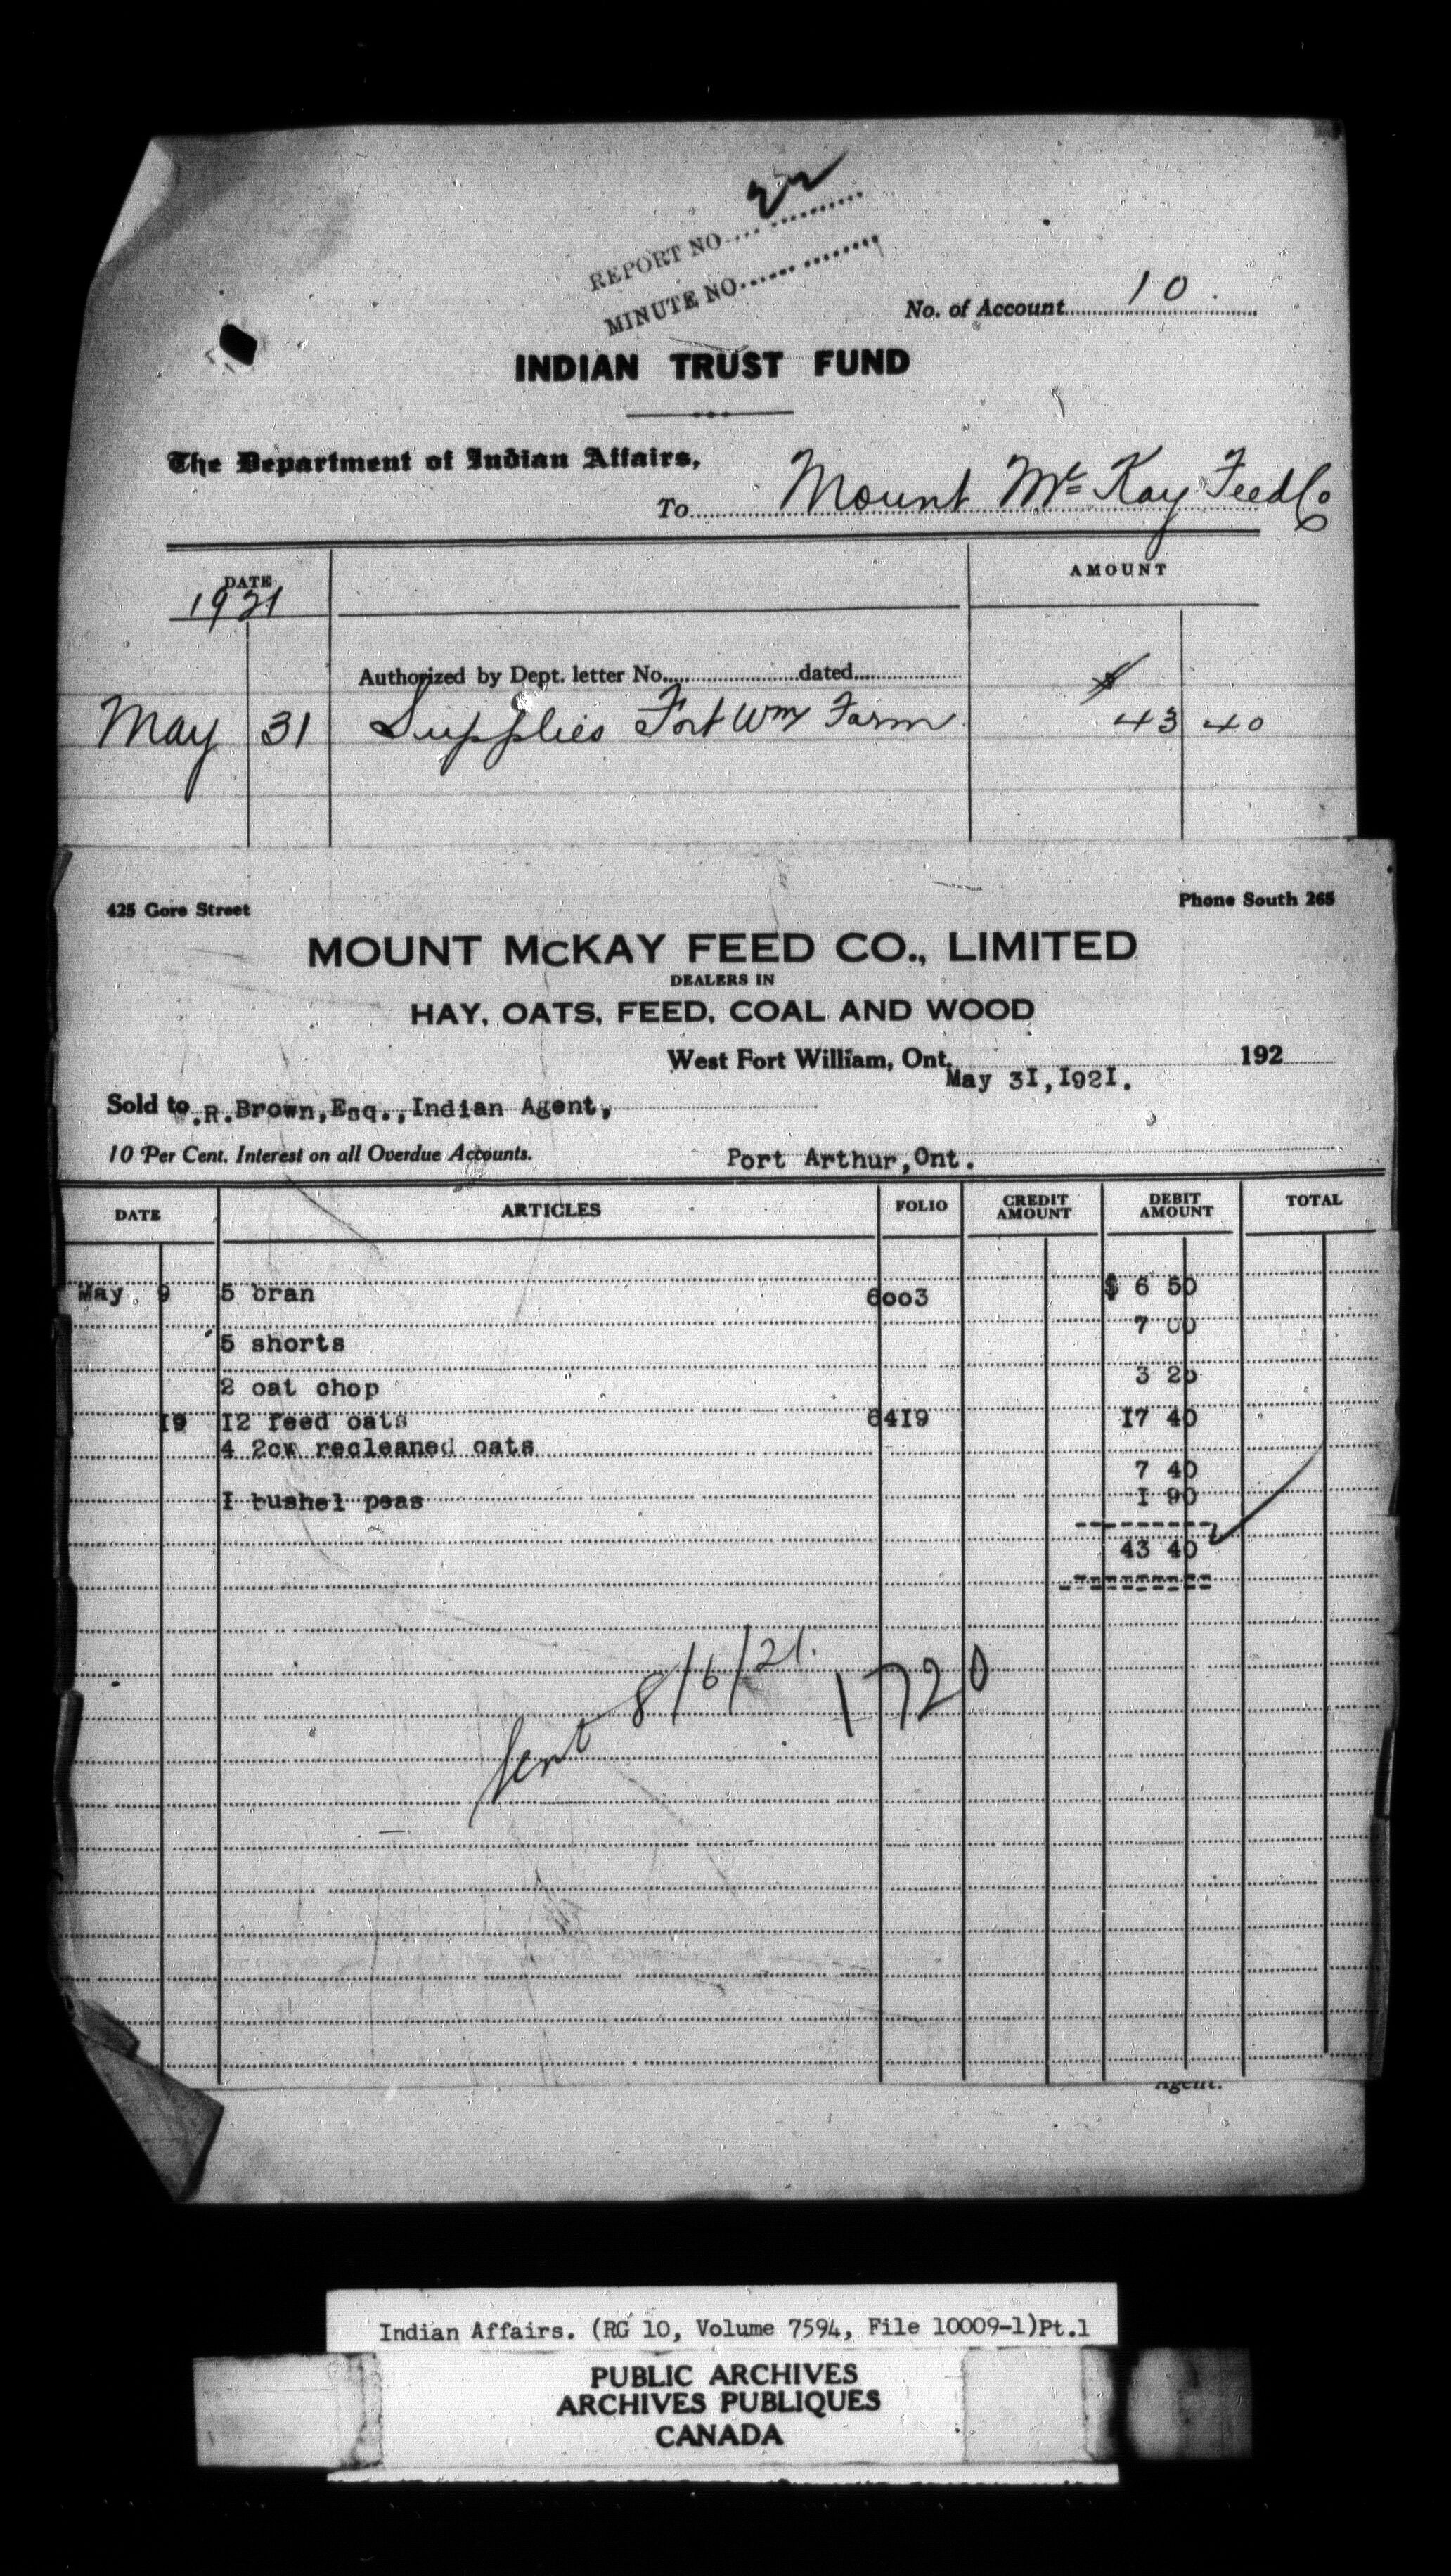 22
REPORT NO....
MINUTE NO....
No. of Account 10
INDIAN TRUST FUND
The Department of Indian Affairs,
To Mount McKay Feed Co
DATE AMOUNT
1921
Authorized by Dept. letter No. dated $
May 31 Supplies Fort Wm Farm 43 40
425 Gore Street Phone South 265
MOUNT McKAY FEED CO., LIMITED
DEALERS IN
HAY, OATS, FEED, COAL AND WOOD
West Fort William, Ont. 192
May 31, 1921.
Sold to W.R.Brown,Esq.,Indian Agent,
10 Per Cent. Interest on all Overdue Accounts. Port Arthur,Ont.
DATE ARTICLES FOLIO CREDIT AMOUNT DEBIT AMOUNT TOTAL
May 9 5 bran 6003 $ 6 50
5 shorts 7 00
2 oat chop 3 20
19 12 feed oats 6419 17 40
4 2cw recleaned oats 7 40
1 bushel peas 1 90
43 40
Sent 8/6/21. 1720
Agent.
Indian Affairs. (RG 10, Volume 7594, File 10009-1)Pt.1
PUBLIC ARCHIVES
ARCHIVES PUBLIQUES
CANADA